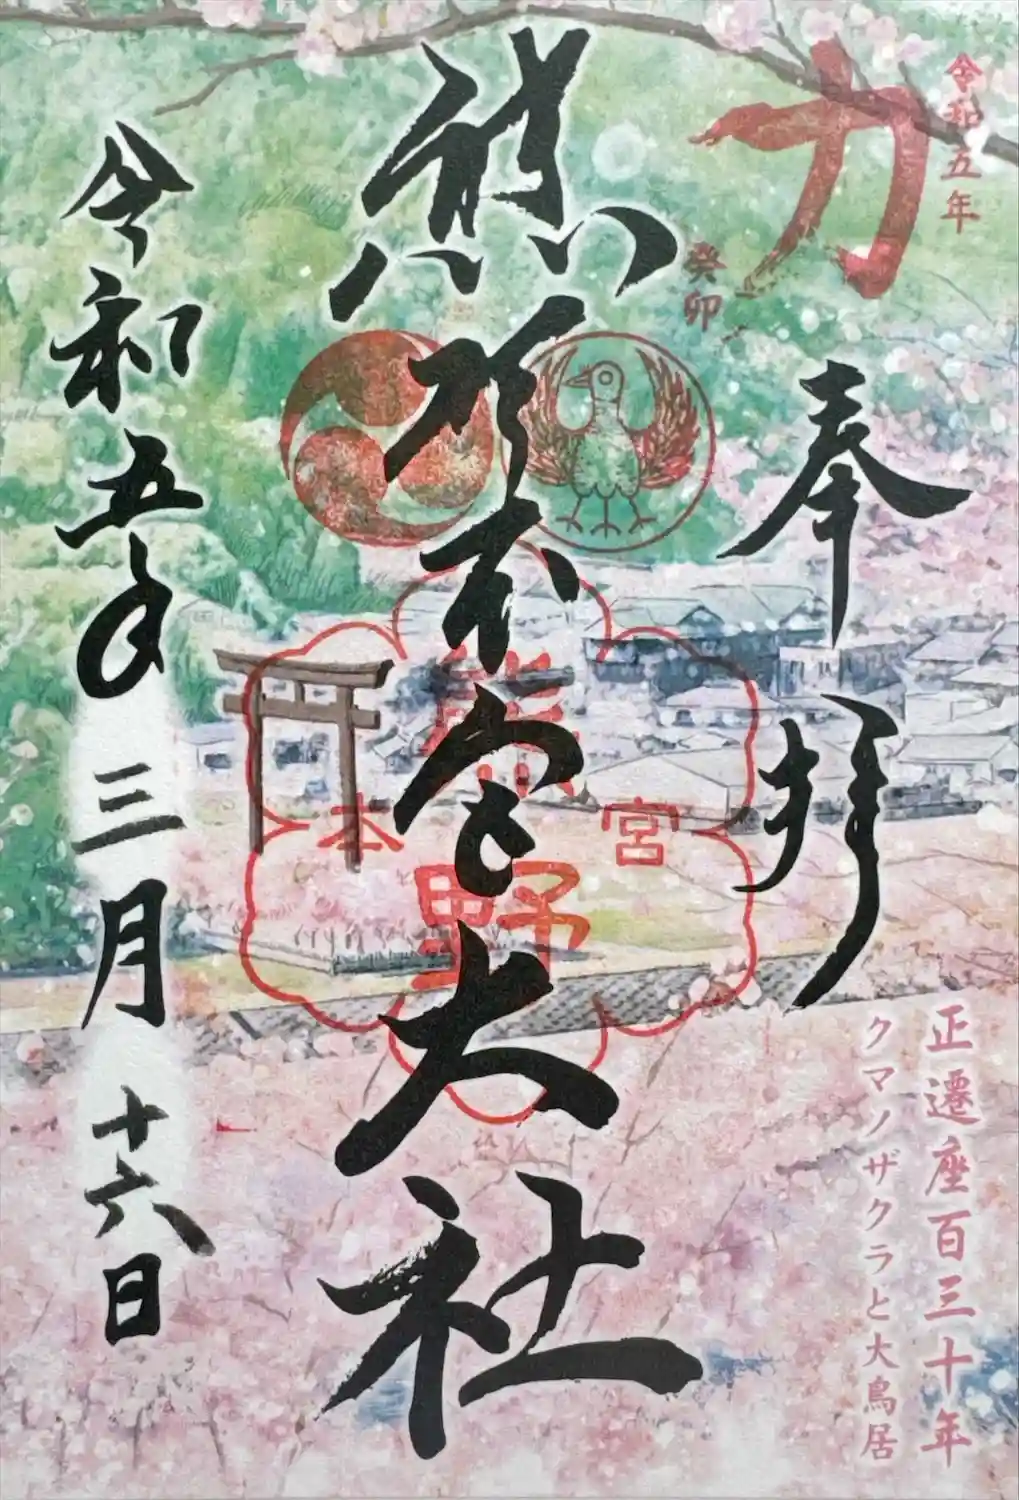 令和五年
力
癸卯
奉拝
正遷座百三十年
クマノザクラと大鳥居
熊野本宮大社
熊野
本宮
令和五年三月十六日